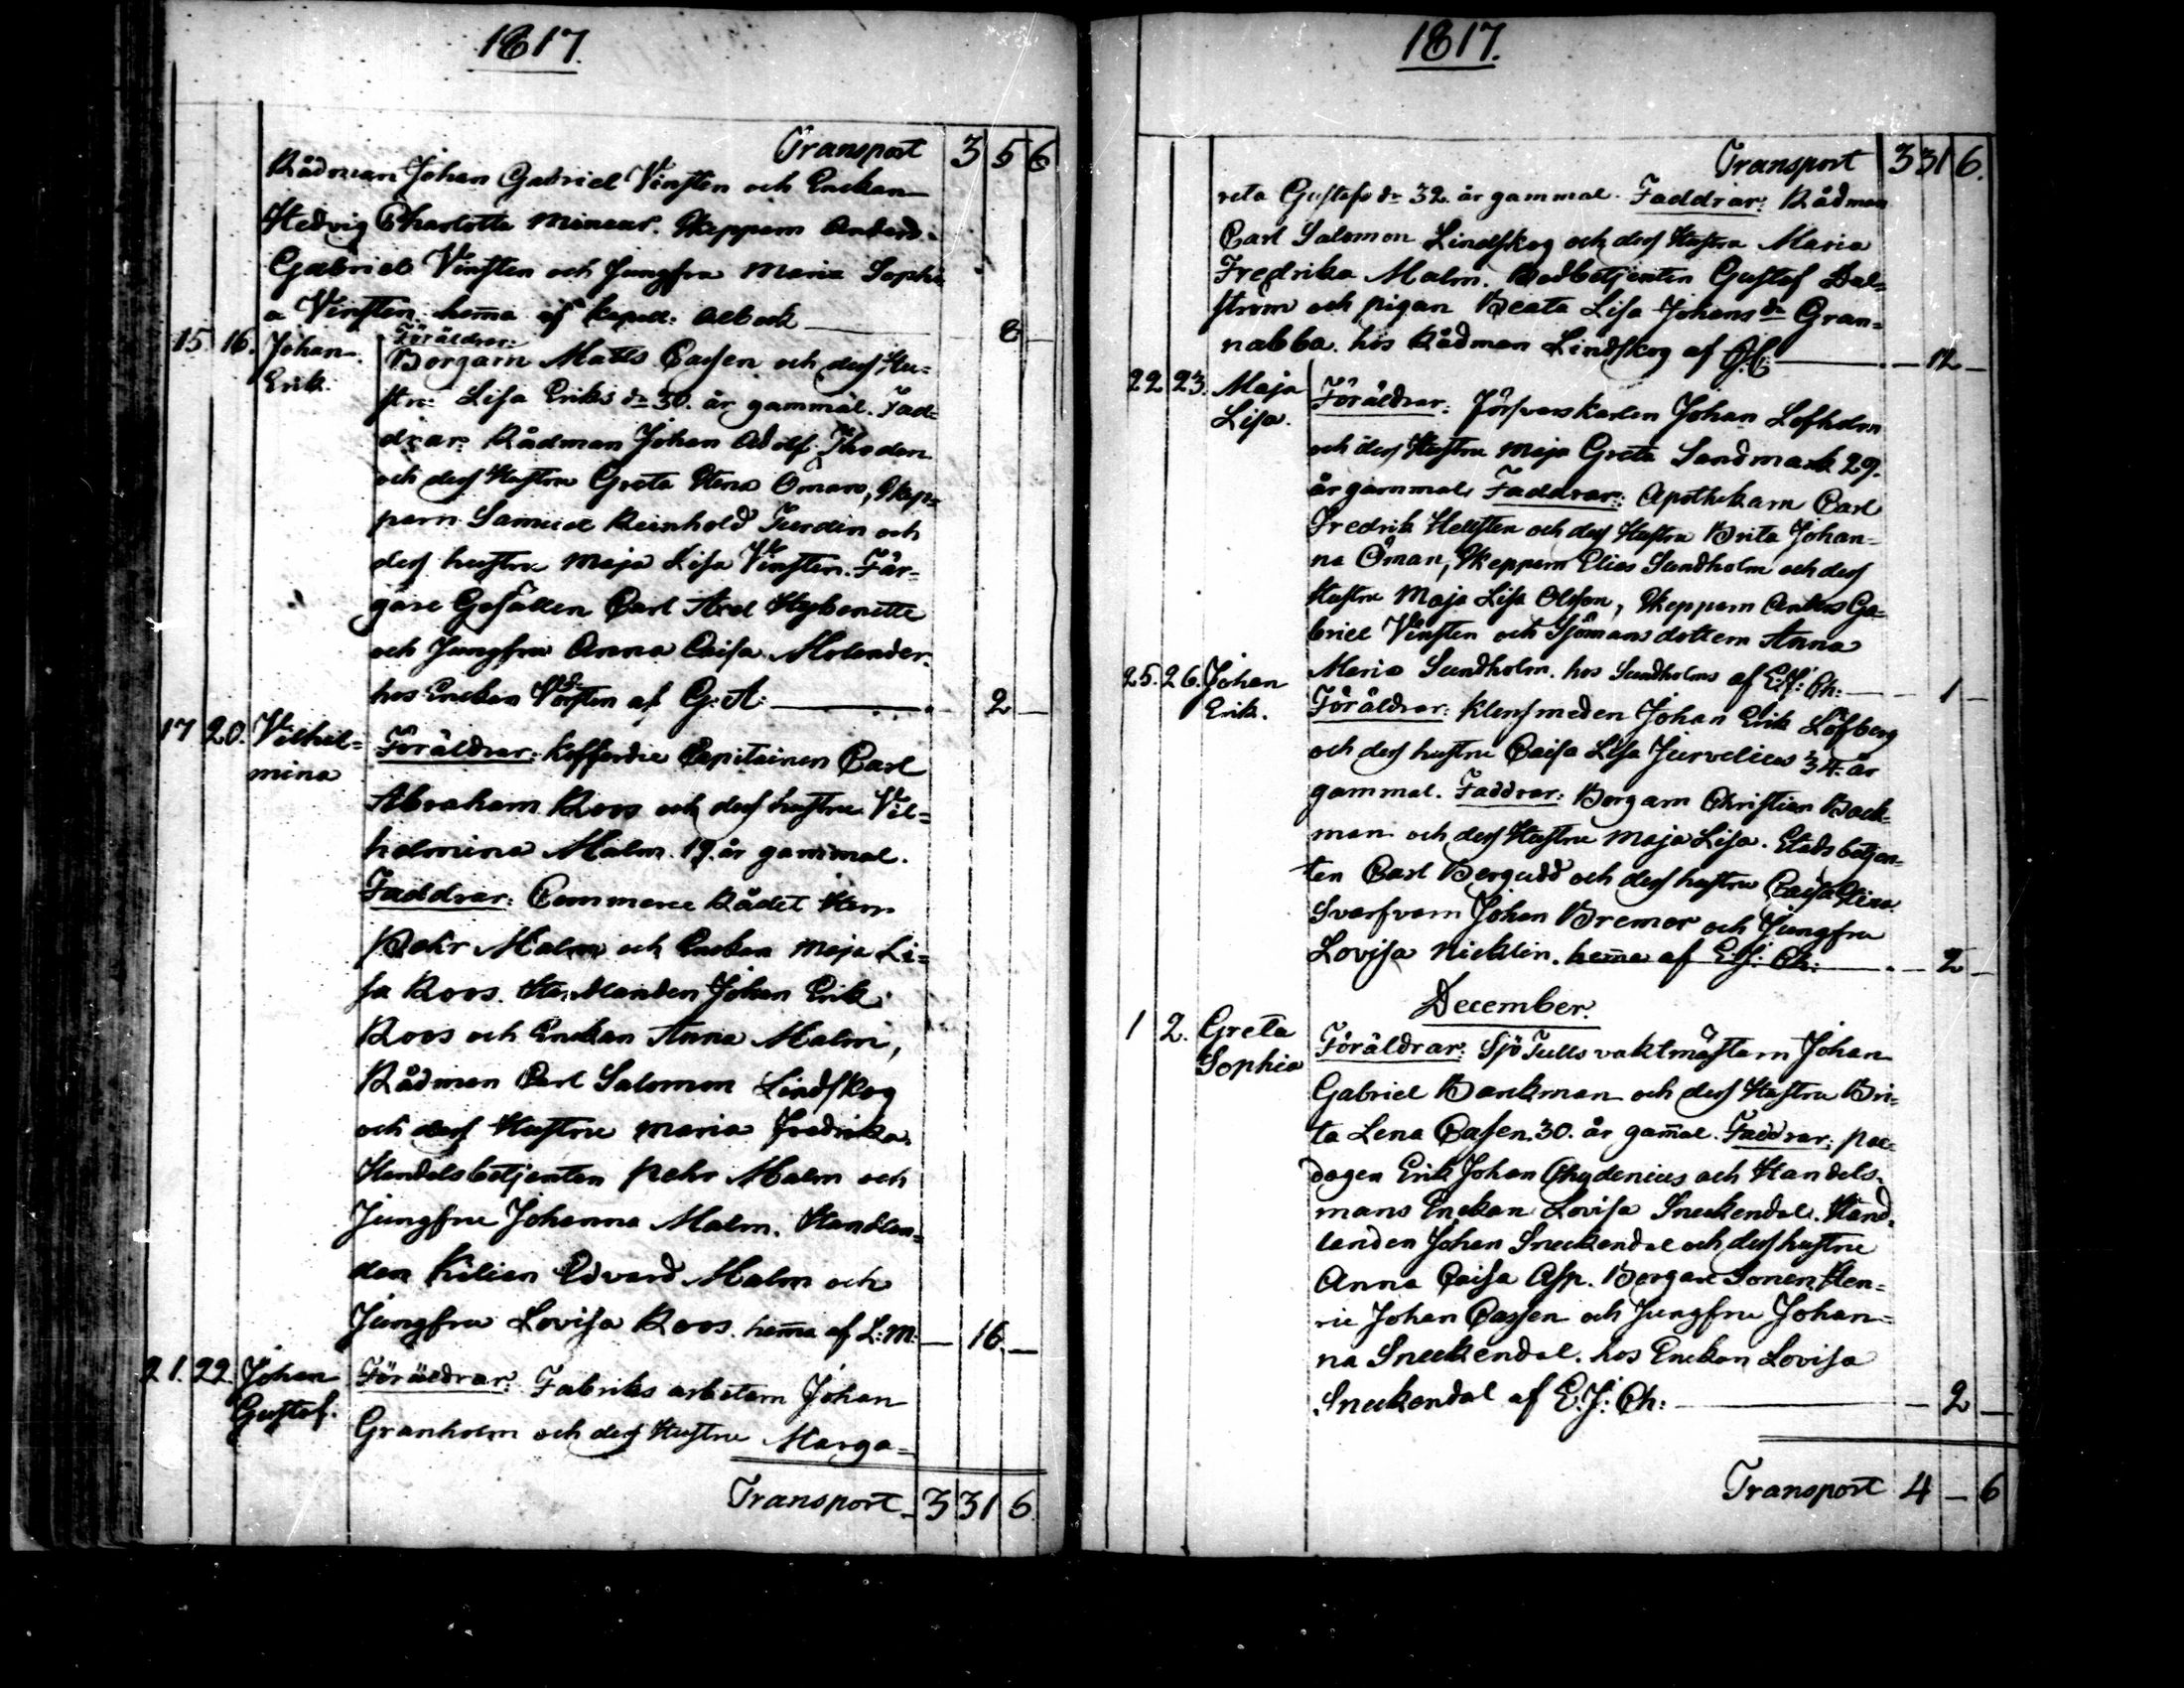 1817.
Transport 3 5 6
Rådman Johan Gabriel Vinsten och Enckan
Hedvig Charlotta Skepparn Anders
Gabriel Vinsten och Jungfru Maria Sophi
a Vinsten. hem̄a af Kapell:
8 —
15. 16. Johan Erik.
Föräldrar:
Borgarn Matts Casen och dess Hu=
stru Lisa Eriks dr 30. år gammal. Fad=
drar: Rådman Johan Adolf Thoden
och dess Hustru Greta Stena Öman, Skep=
parn Samuel Reinhold Turdin och
dess hustru Maja Lisa Vinsten. Fär=
gare Gesällen Carl Axel
och Jungfru Anna Caisa Molander.
hos Enckan af G: A: — 2 —
17 20. Vilhel=
mina
Föräldrar: Koffardie Capitainen Carl
Abraham Roos och dess hustru Vil=
helmina Malm. 19. år gammal.
Faddrar: Commerce Rådet Herr
Pehr Malm och Enckan Maja Li=
sa Roos. Handlanden Johan Erik
Roos och Enckan Anna Malm,
Rådman Carl Salomon Lindskog
och dess Hustru Maria Fredrika.
Handelsbetjenten Pehr Malm och
Jungfru Johanna Malm. Handlan=
den Kilian Edvard Malm och
Jungfru Lovisa Roos. hem̄a af L: M: — 16. —
21. 22. Johan
Gustaf.
Föräldrar: Fabriks arbetarn Johan
Granholm och dess Hustru Marga=
Transport 3 31 6.
1817.
Transport 3 31 6.
reta Gustafs dr 32. år gammal. Faddrar: Rådman
Carl Salomon Lindskog och dess Hustru Maria
Fredrika Malm. Bodbetjenten Gustaf Dal=
ström och pigan Beata Lisa Johans dr Gran=
nabba. hos Rådman Lindskog af — 12 —
22 23. Maja
Lisa.
Föräldrar: Försvarskarlen Johan Lofholm
och dess Hustru Maja Greta Sandmark 29.
år gammal. Faddrar: Apothekarn Carl
Fredrik Hellsten och dess Hustru Brita Johan=
na Öman, Skepparn Elias Sundholm och dess
Hustru Maja Lisa Olsson, Skepparn Anders Ga=
briel Vinsten och Sjömans dottern Anna
Maria Sundholm. hos Sundholms af E: J: Ch: — 1 —
25. 26. Johan
Erik.
Föräldrar: Klensmeden Johan Erik Löfberg
och dess hustru Caisa Lisa Jurvelius 34. år
gammal. Faddrar: Borgarn Christian Back=
man och dess Hustru Maja Lisa. Stadsbetjen=
ten Carl Bergudd och dess hustru Caisa Stina
Svarfvarn Johan Bremer och Jungfru
Lovisa Nicklin. hem̄a af E: J: Ch: — 2 —
December.
1 2. Greta
Sophia
Föräldrar: Sjö Tulls vaktmästarn Johan
Gabriel Backman och dess Hustru Bri=
ta Lena Casen. 30. år gam̄al. Faddrar: pæ=
dagen Erik Johan Chydenius och Handels=
mans Enckan Lovisa Sneckendal. Hand=
landen Johan Sneckendal och dess hustru
Anna Caisa Asp. Borgare Sonen Hen=
ric Johan Cassen och Jungfru Johan=
na Sneckendal. hos Enckan Lovisa
Sneckendal af E: J: Ch: — 2 —
Transport 4 — 6